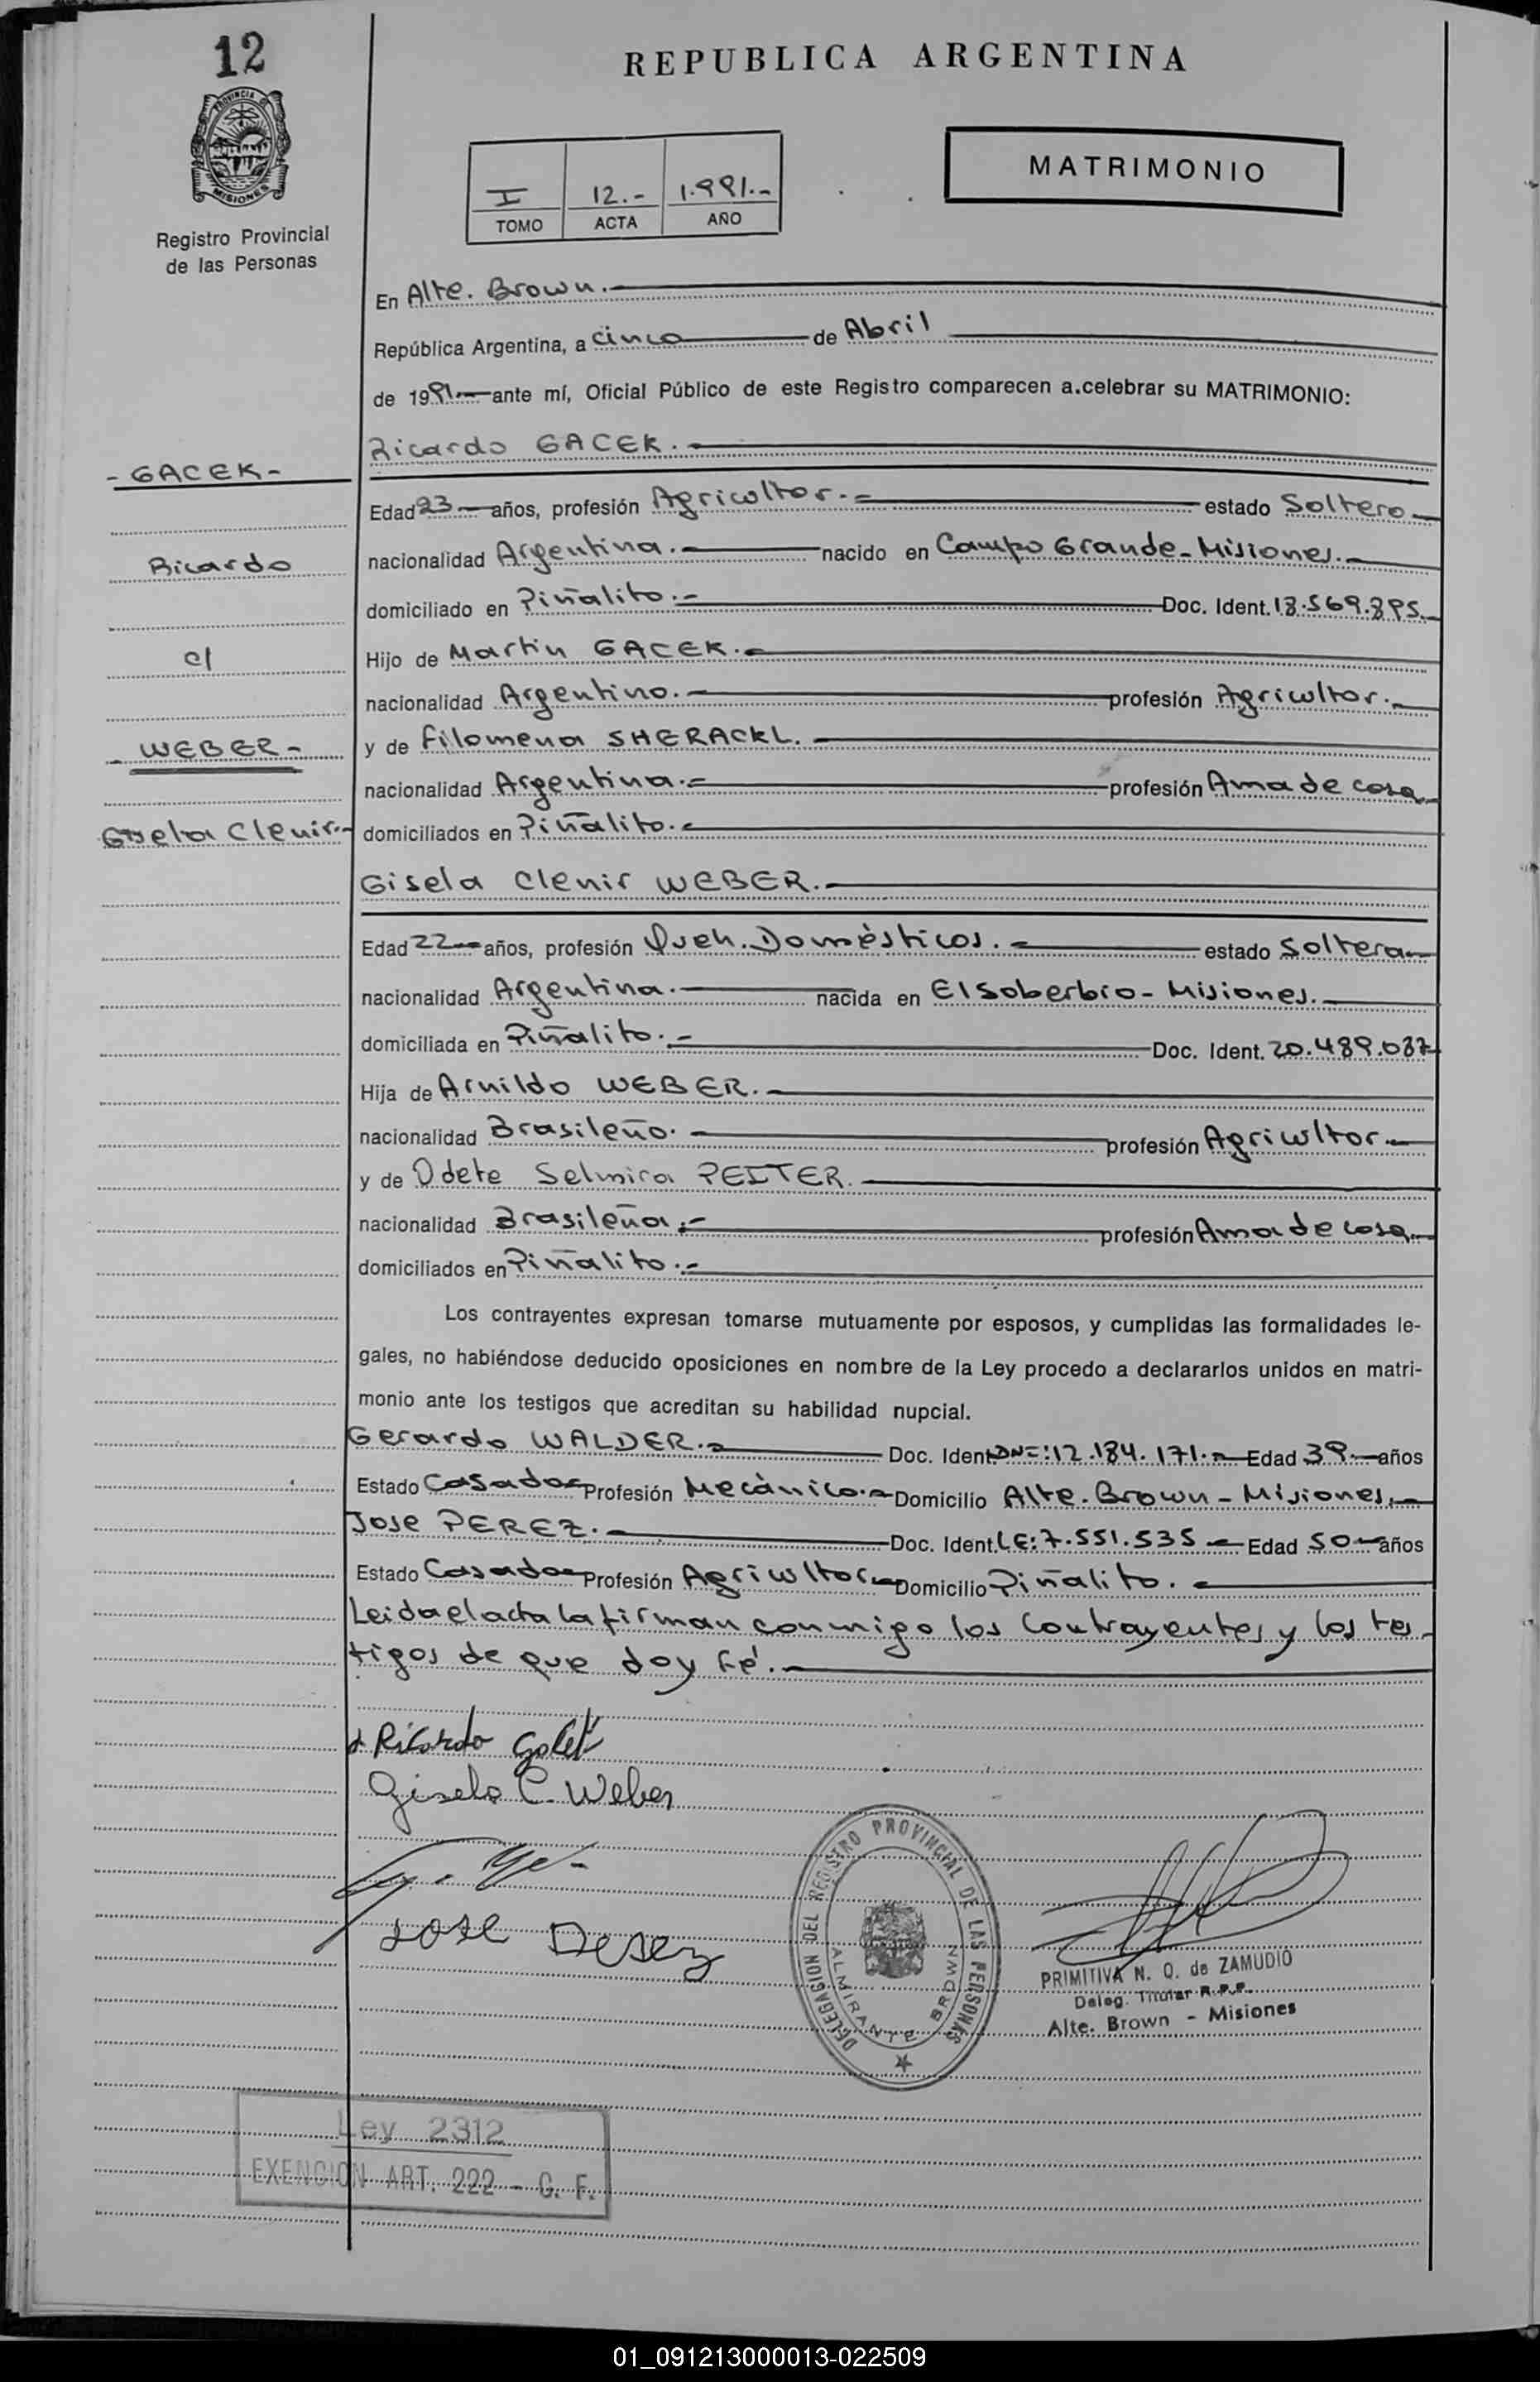 12
REPUBLICA ARGENTINA
PROVINCIA DE MISIONES
Registro Provincial
de las Personas
I 12.- 1.991.-
TOMO ACTA AÑO
MATRIMONIO
En Alte. Brown.
República Argentina, a cinco de Abril
de 1991 ante mí, Oficial Público de este Registro comparecen a celebrar su MATRIMONIO:
Ricardo GACEK.
- GACEK -
Edad 23 años, profesión Agricultor.- estado Soltero
nacionalidad Argentina. nacido en Campo Grande - Misiones.
Ricardo
domiciliado en Piñalito.- Doc. Ident. 18.569.895.
Hijo de Martin GACEK.
c/
nacionalidad Argentino. profesión Agricultor.
y de Filomena SHERACKL.
- WEBER -
nacionalidad Argentina.- profesión Ama de casa
domiciliados en Piñalito.
Gisela Clenir.-
Gisela Clenir WEBER.
Edad 22 años, profesión Queh. Domèsticos. estado Soltera
nacionalidad Argentina. nacida en El Soberbio - Misiones.
domiciliada en Piñalito.- Doc. Ident. 20.489.087
Hija de Arnildo WEBER.
nacionalidad Brasileño. profesión Agricultor.
y de Odete Selmira PEITER.
nacionalidad Brasileña.- profesión Ama de casa
domiciliados en Piñalito.-
Los contrayentes expresan tomarse mutuamente por esposos, y cumplidas las formalidades le-
gales, no habiéndose deducido oposiciones en nombre de la Ley procedo a declararlos unidos en matri-
monio ante los testigos que acreditan su habilidad nupcial.
Gerardo WALDER. Doc. Ident. DNI: 12.184.171. Edad 39 años
Estado Casado Profesión Mecànico. Domicilio Alte. Brown - Misiones.
Jose PEREZ. Doc. Ident. LE: 7.551.535 Edad 50 años
Estado Casado Profesión Agricultor Domicilio Piñalito.
Leida el acta la firman conmigo los Contrayentes y los tes-
tigos de que doy fé.
Ricardo Gacek
Gisela C. Weber
Jose Perez
DELEGACION DEL REGISTRO PROVINCIAL DE LAS PERSONAS
ALMIRANTE BROWN
PRIMITIVA N. Q. de ZAMUDIO
Deleg. Titular R.P.P.
Alte. Brown - Misiones
Ley 2312
EXENCION ART. 222 - C. F.
01_091213000013-022509